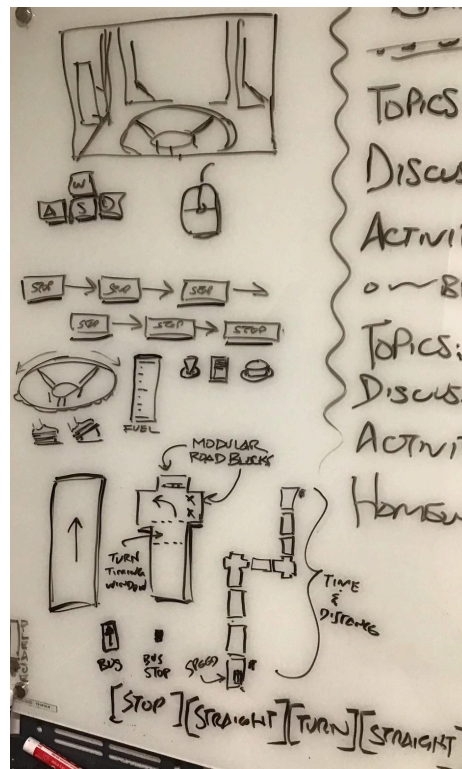 W
A S D
STOP STOP STOP
STOP STOP STOP
FUEL
MODULAR
ROAD BLOCKS
TURN
TIMING
WINDOW
TIME
&
DISTANCE
BUS
BUS
STOP
SPEED
[STOP][STRAIGHT][TURN][STRAIGHT
TOPICS
DISCUS
ACTIVIT
TOPICS:
DISCUS
ACTIVI
HOMEW